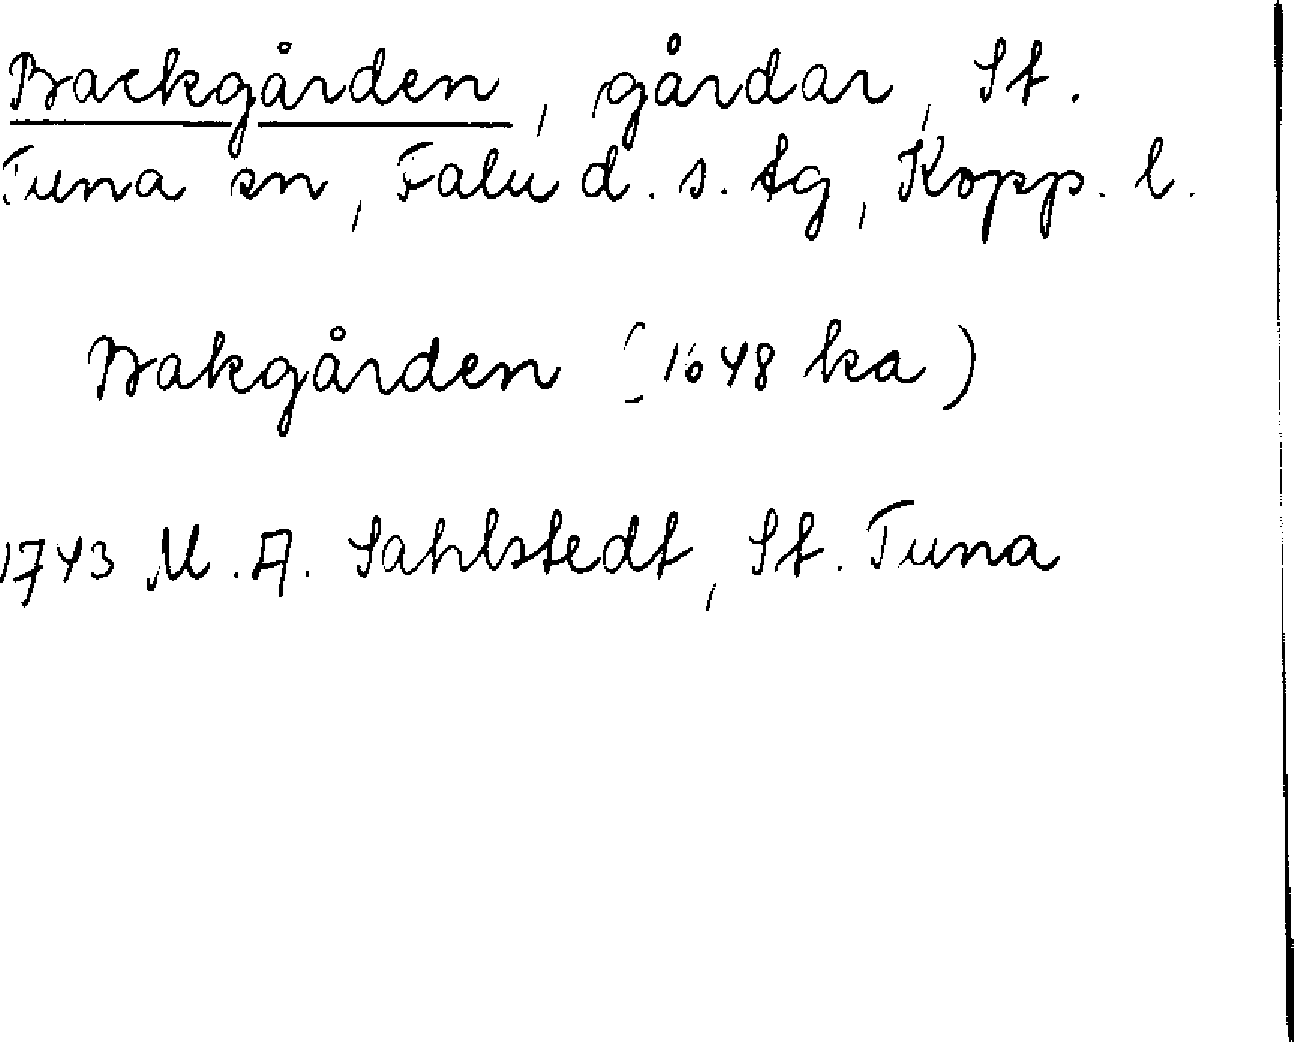 Backgården, gårdar, St.
Tuna sn, Falu d. s. tg, Kopp. l.
Bakgården (1648 ka)
1743 M. A. Sahlstedt, St. Tuna